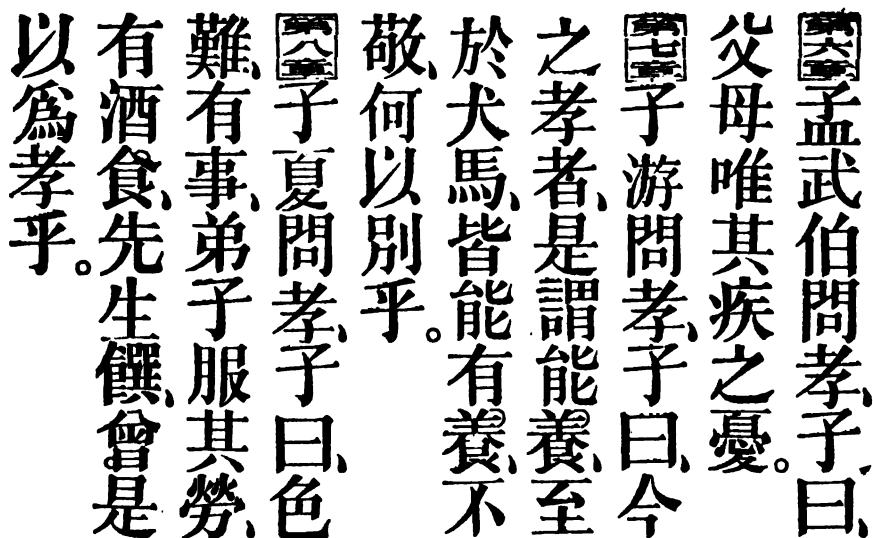 第六章孟武伯問孝、子曰、
父母唯其疾之憂。
第七章子游問孝、子曰、今
之孝者、是謂能養、至
於犬馬、皆能有養、不
敬、何以別乎。
第八章子夏問孝、子曰、色
難、有事、弟子服其勞、
有酒食、先生饌、曾是
以爲孝乎。